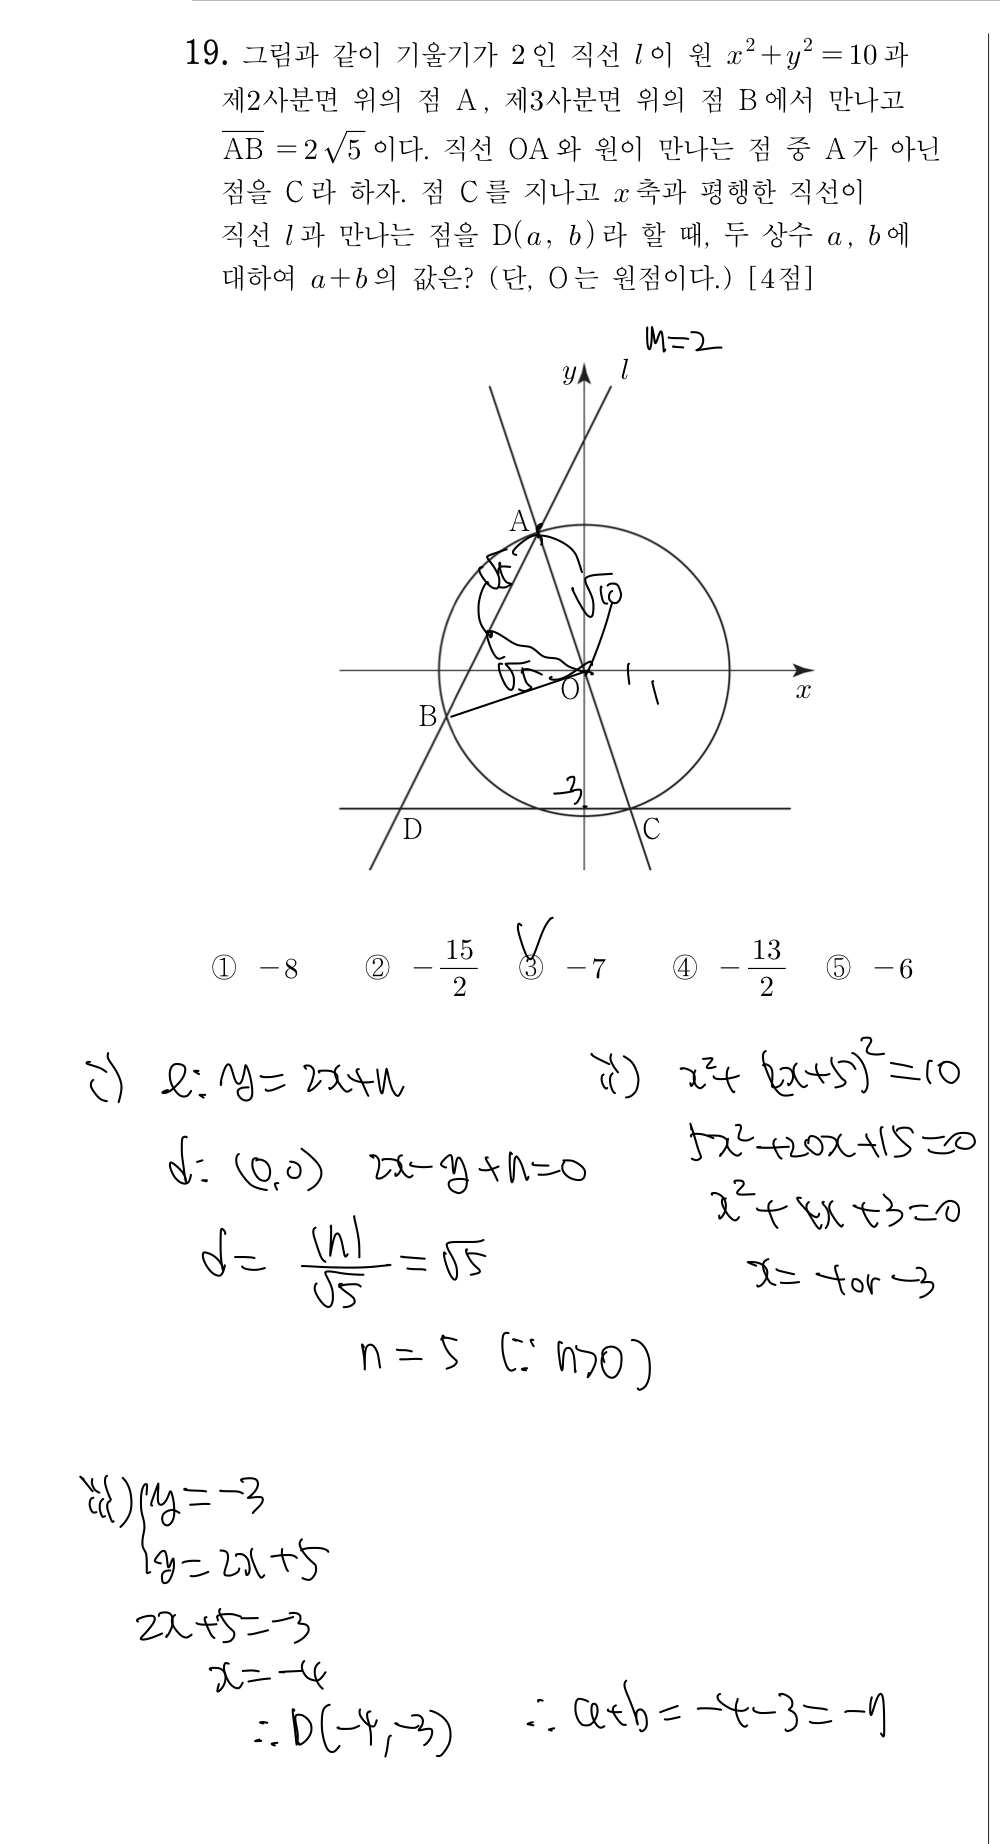 19. 그림과 같이 기울기가 2인 직선 l이 원 x²+y²=10과
제2사분면 위의 점 A, 제3사분면 위의 점 B에서 만나고
AB=2√5이다. 직선 OA와 원이 만나는 점 중 A가 아닌
점을 C라 하자. 점 C를 지나고 x축과 평행한 직선이
직선 l과 만나는 점을 D(a, b)라 할 때, 두 상수 a, b에
대하여 a+b의 값은? (단, O는 원점이다.) [4점]
m=2
y
l
A
√5
√10
√5
O
1
1
x
B
-3
D
C
V
① -8 ② -15/2 ③ -7 ④ -13/2 ⑤ -6
i) l: y=2x+n
d: (0,0) 2x-y+n=0
d= |n|/√5 = √5
n=5 (∵ n>0)
ii) x²+(2x+5)²=10
5x²+20x+15=0
x²+4x+3=0
x= -1 or -3
iii) y=-3
y=2x+5
2x+5=-3
x=-4
∴D(-4,-3)
∴ a+b=-4-3=-7